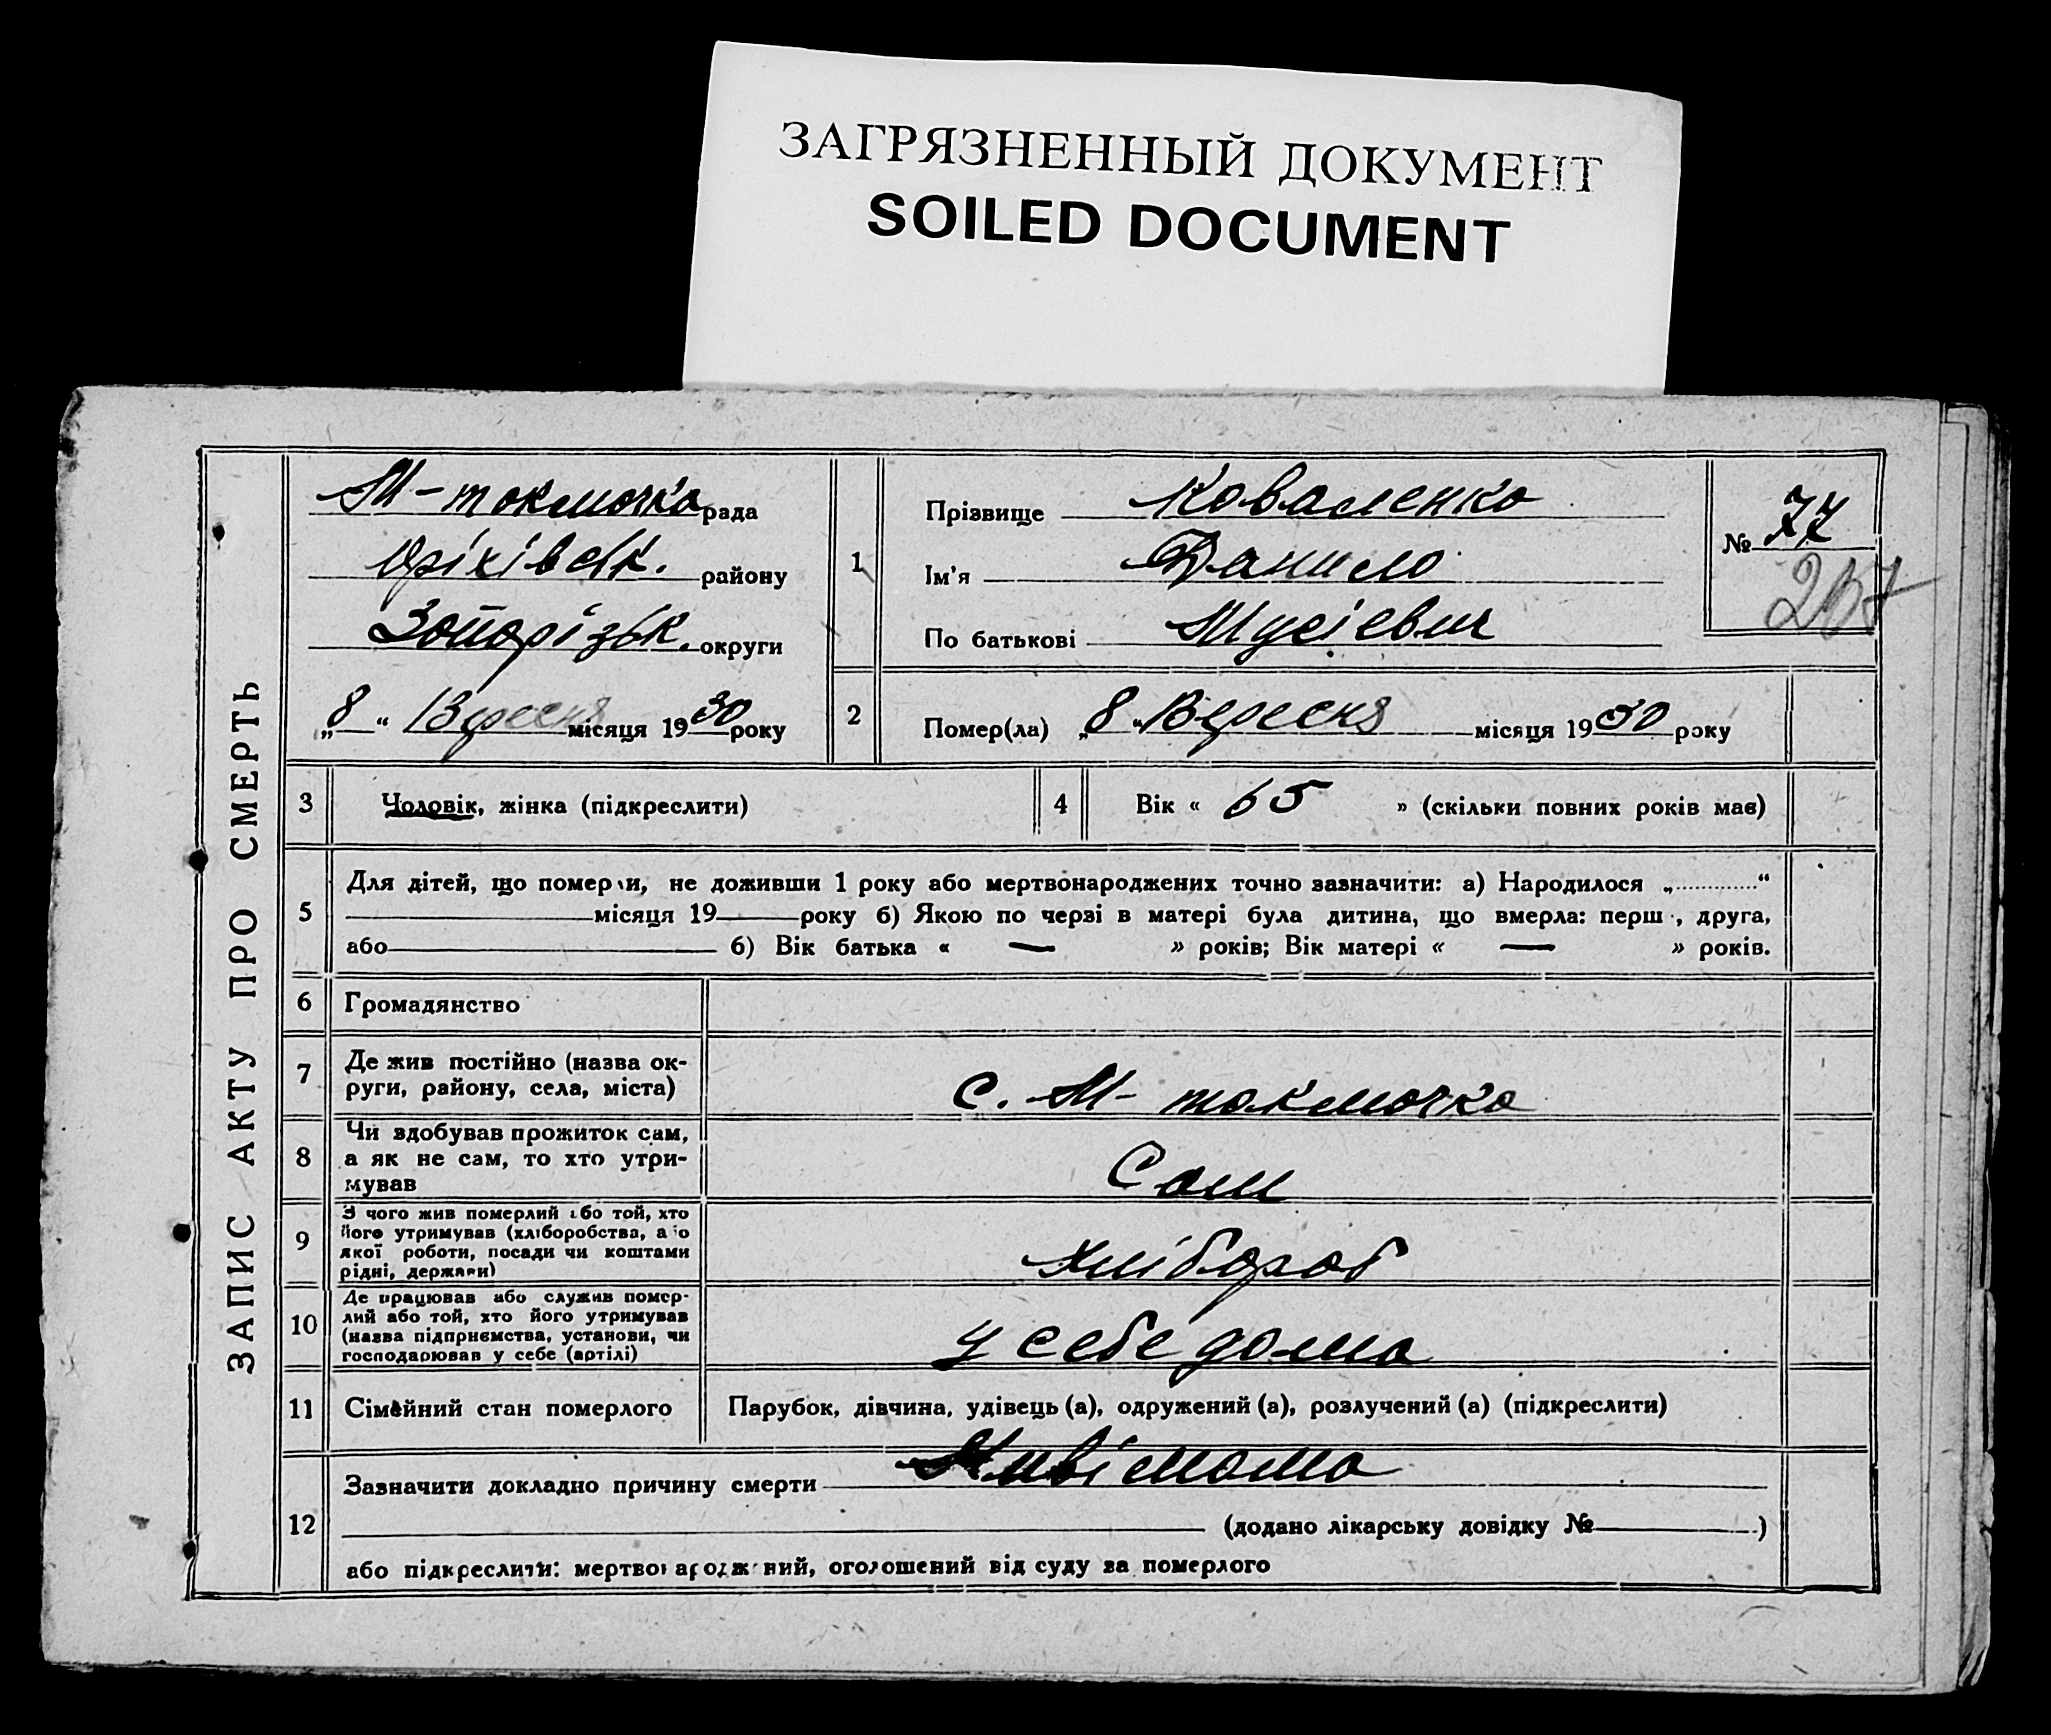 ЗАГРЯЗНЕННЫЙ ДОКУМЕНТ
SOILED DOCUMENT
ЗАПИС АКТУ ПРО СМЕРТЬ
М-токмочка рада
Оріхівськ. району
Запорізьк. округи
„8“ Вересня місяця 1930 року
1
Прізвище Коваленко
Ім'я Данило
По батькові Мусієвич
№ 77
2
Помер(ла) „8“ Вересня місяця 1930 року
3
Чоловік, жінка (підкреслити)
4
Вік « 65 » (скільки повних років має)
5
Для дітей, що померли, не доживши 1 року або мертвонароджених точно зазначити: а) Народилося „............“
місяця 19 року б) Якою по черзі в матері була дитина, що вмерла: перш , друга,
або б) Вік батька « — » років; Вік матері « — » років.
6
Громадянство
7
Де жив постійно (назва ок-
руги, району, села, міста)
с. М-токмочка
8
Чи здобував прожиток сам,
а як не сам, то хто утри-
мував
Сам
9
З чого жив померлий або той, хто
його утримував (хліборобства, або
якої роботи, посади чи коштами
рідні, держави)
хлібороб
10
Де працював або служив помер-
лий або той, хто його утримував
(назва підприємства, установи, чи
господарював у себе (артілі)
у себе дома
11
Сімейний стан померлого
Парубок, дівчина, удівець (а), одружений (а), розлучений (а) (підкреслити)
12
Зазначити докладно причину смерти
(додано лікарську довідку № )
або підкреслити: мертвонароджений, оголошений від суду за померлого